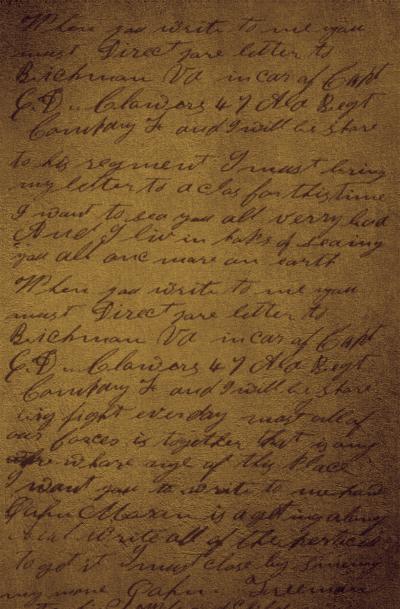 When you write to me you
must Direct yare letter to
Richman Va in car of Capt
C. D. Clowers 47 Ala Regt
Company F and I will be shore
to his regment I must bring
my letter to a clos for this time
I want to sea you all verry bad
And I liv in hops of seaing
you all onc more on earth
When you write to me you
must Direct yare letter to
Richman Va in car of Capt
C. D. Clowers 47 Ala Regt
Company F and I will be shore
fight everday most all of
our forces is together that is any
whare nige of this Place
I want you to write to me how
John is a
write all of the
to got it I must close by
my name John Freeman